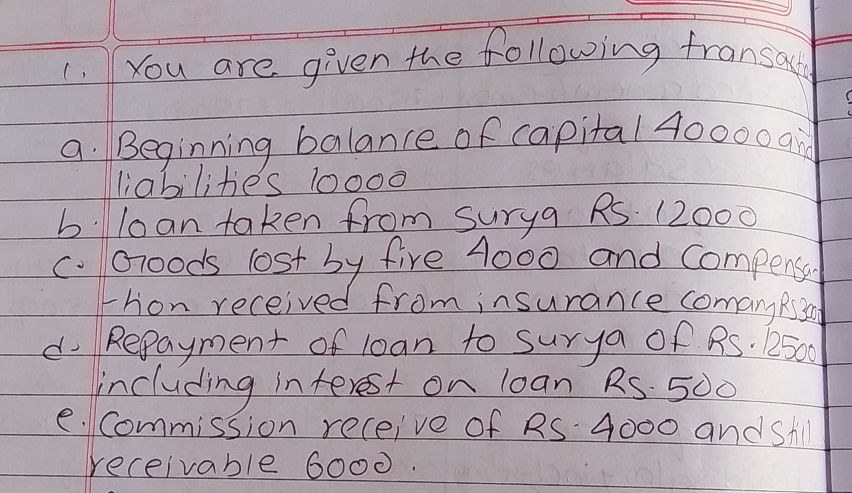 1. You are given the following transactio
a. Beginning balance of capital 40000 and
liabilities 10000
b. loan taken from surya Rs. 12000
c. Goods lost by fire 4000 and compensa-
-tion received from insurance comany Rs 3000
d. Repayment of loan to surya of Rs. 12500
including interest on loan Rs. 500
e. Commission receive of Rs. 4000 and still
receivable 6000.